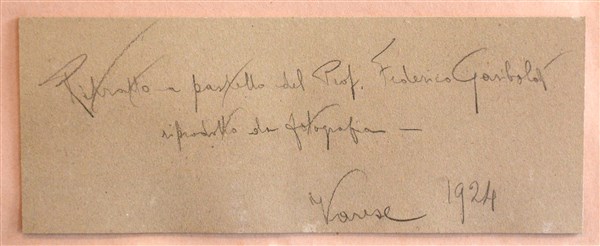 Ritratto a pastello del Prof. Federico Gariboldi
riprodotto da fotografia —
Varese 1924